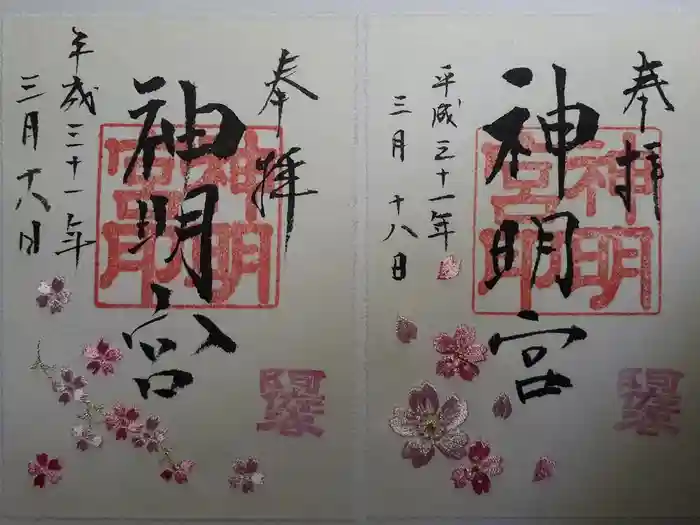 奉拝
神明宮
平成三十一年
三月十八日
神明
宮印
奉拝
神明宮
平成三十一年
三月十八日
神明
宮印